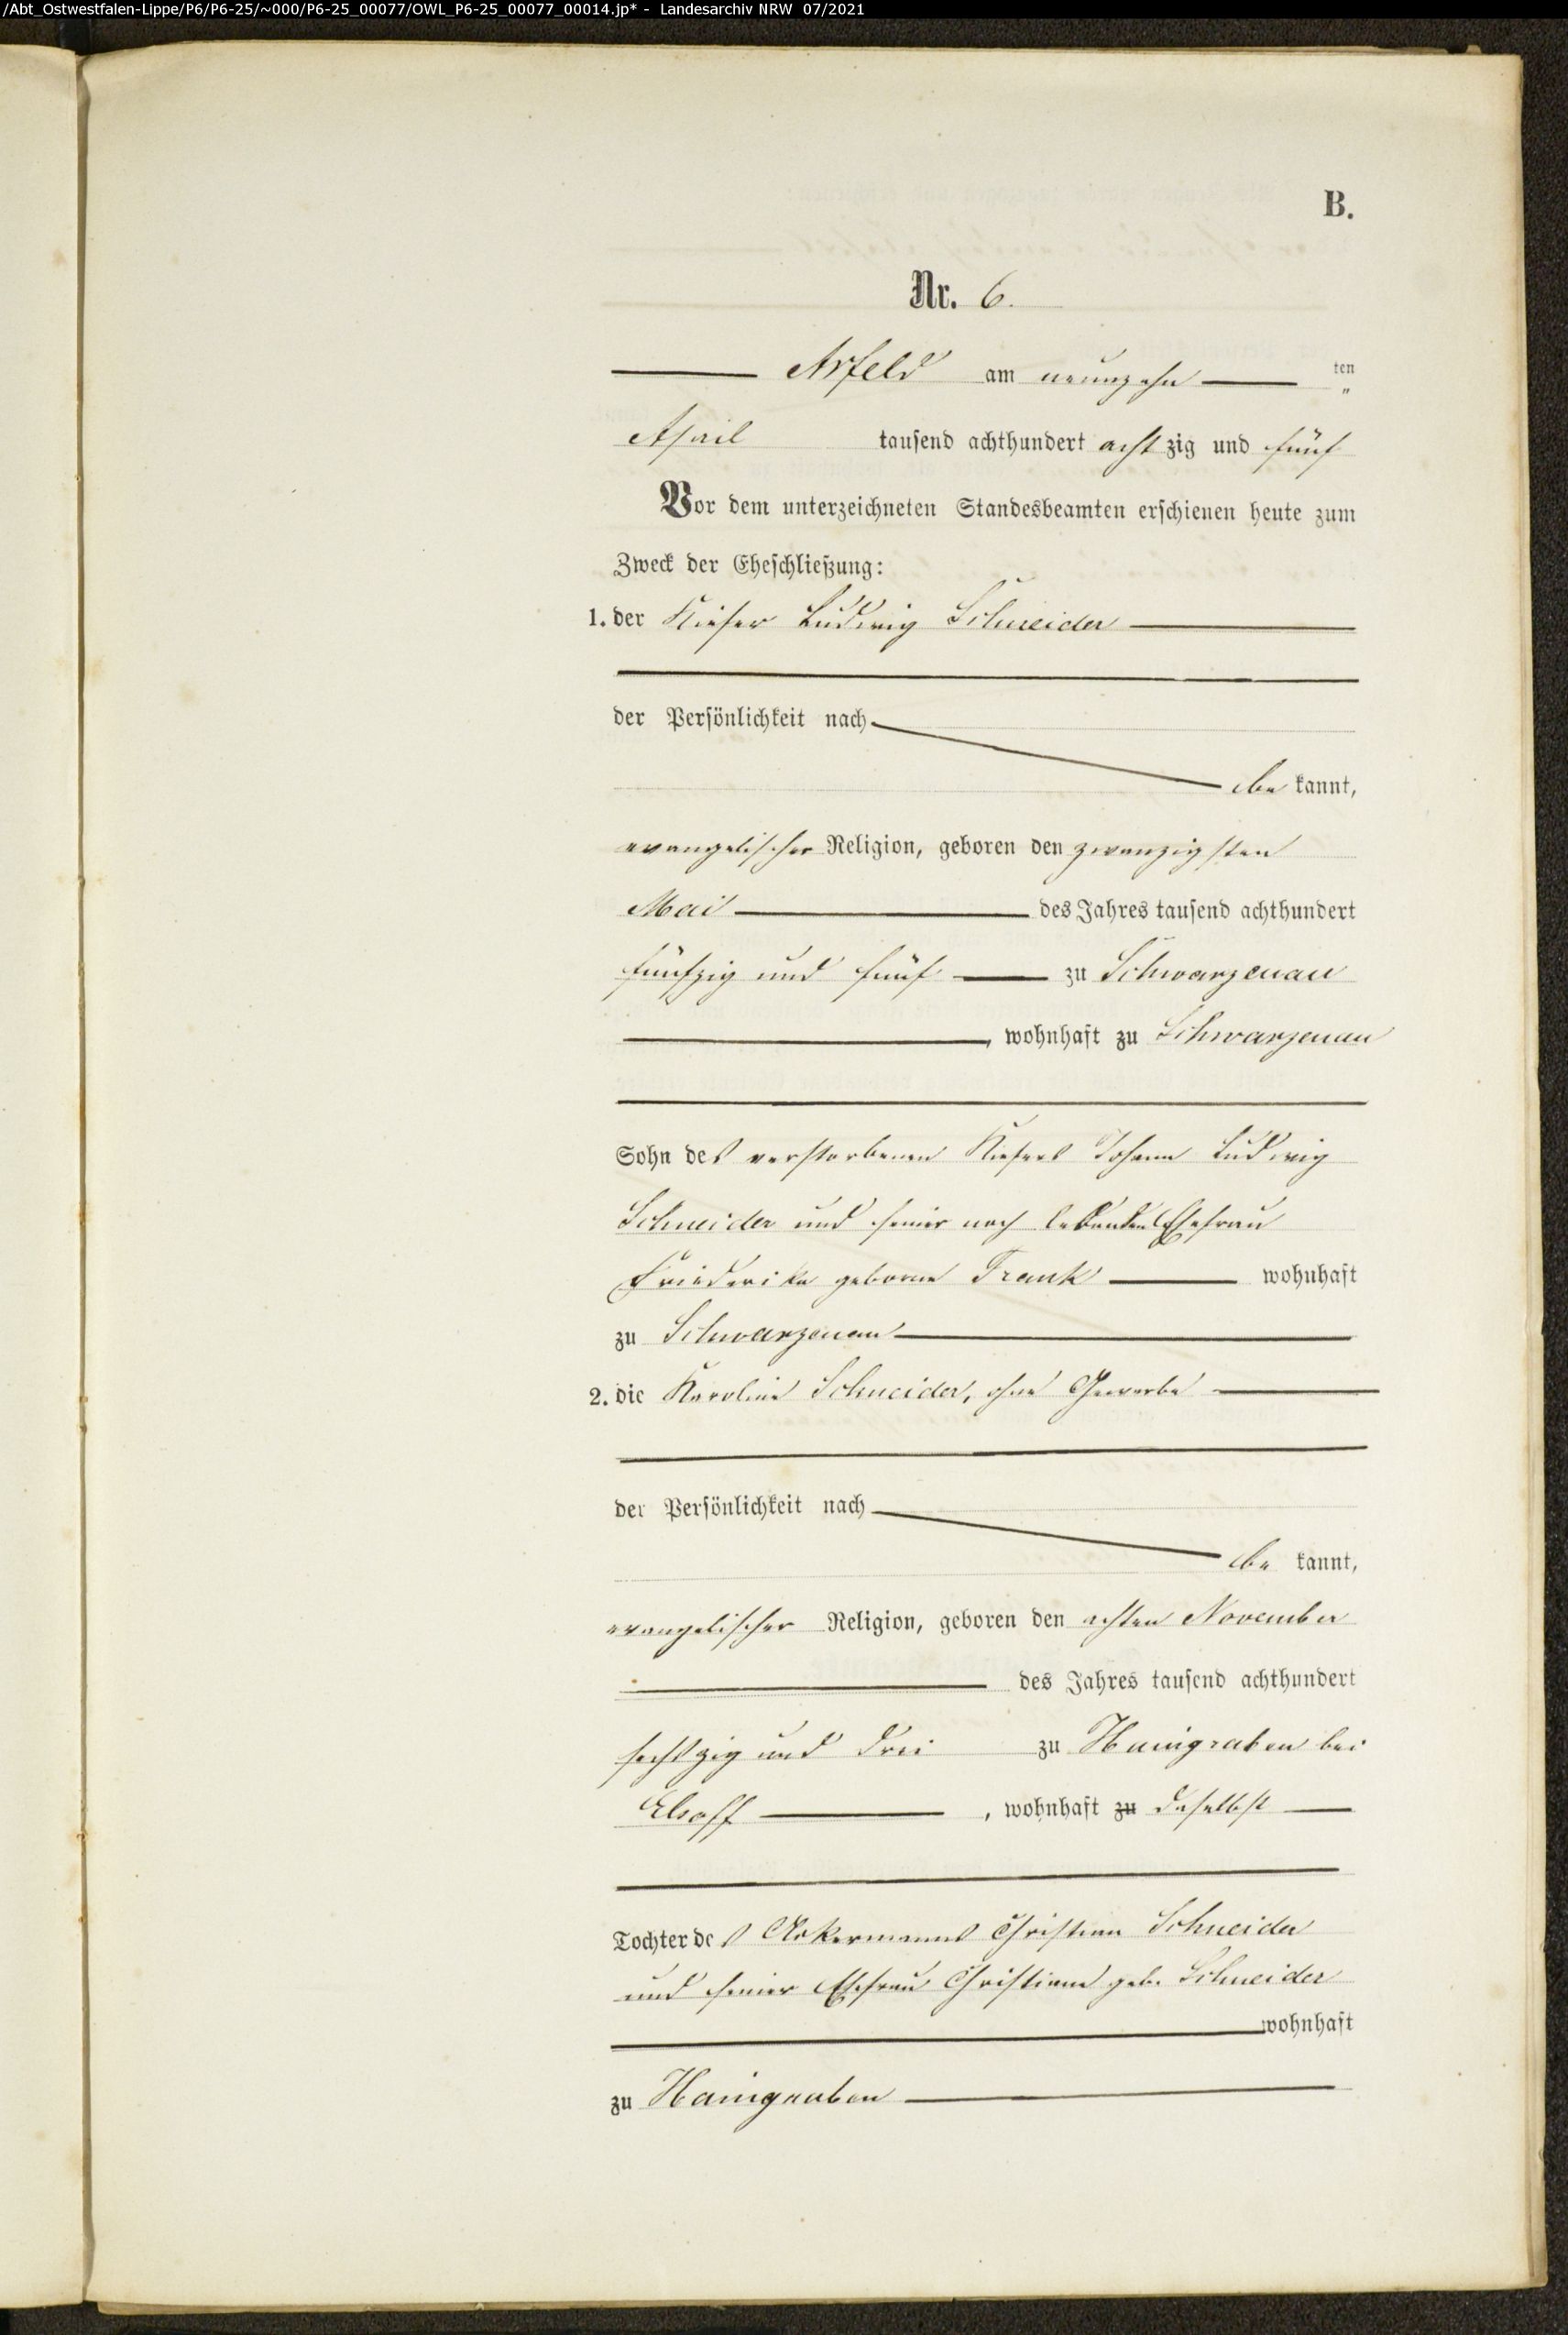 /Abt_Ostwestfalen-Lippe/P6/P6-25/~000/P6-25_00077/OWL_P6-25_00077_00014.jp* - Landesarchiv NRW 07/2021
B.
Nr. 6.
Arfeld am neunzehn ten
April tausend achthundert achtzig und fünf
Vor dem unterzeichneten Standesbeamten erschienen heute zum
Zweck der Eheschließung:
1. der Ludwig Schneider
der Persönlichkeit nach
be kannt,
evangelischer Religion, geboren den zwanzigsten
Mai des Jahres tausend achthundert
fünfzig und fünf zu Schwarzenau
, wohnhaft zu Schwarzenau
Sohn des verstorbenen Johann Ludwig
Schneider und seiner noch lebenden Ehefrau
Friederike geborne Frank wohnhaft
zu Schwarzenau
2. die Karoline Schneider, ohne Gewerbe
der Persönlichkeit nach
be kannt,
evangelischer Religion, geboren den achten November
des Jahres tausend achthundert
sechszig und drei zu Haingraben bei
Elsoff , wohnhaft zu daselbst
Tochter des Ackermanns Christian Schneider
und seiner Ehefrau Christiane geb. Schneider
wohnhaft
zu Haingraben